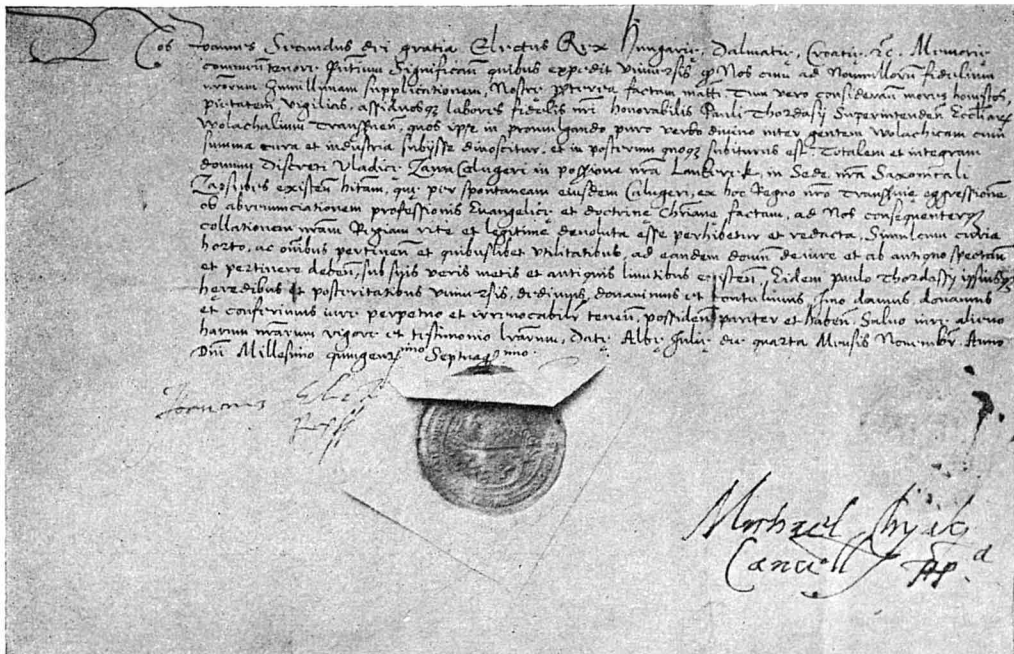 Nos Joannes Secundus dei gratia Electus Rex Hungarie, Dalmatie, Croatie etc. Memorie
commen tenore pntium Significam quibus expedit universis q Nos cum ad Nonnullorum fidelium
nrorum humillimam supplicationem, Nostre pterea factam matti Tum vero consideran mores honestos,
pietatem, vigilias, assiduosq labores fidelis nri honorabilis Pauli Thordasy Superintenden Eccliarum
Wolachalium Transsilnen, quos ipse in promulgando puro verbo divino inter gentem Wolachicam cum
summa cura et industria subysse dinoscitur, et in posterum quoq subiturus est Totalem et integram
domum Discreti Vladici Calugeri in possione nra Lankerek, in Sede nra Saxonicali
existen hitam, que per spontaneam eiusdem Calugeri, ex hoc Regno nro Transsilnie egressionem
ob abrenunciationem professionis Evangelice et doctrine Chriane factam, ad Nos consequenterq
collationem nram Regiam rite et legitime devoluta esse perhibetur et redacta, Simulcum curia
horto, ac omibus pertinen et quibuslibet utilitatibus, ad eandem domum de iure et ab antiquo spectan
et pertinere deben, sub suis veris metis et antiquis limitibus existen, Eidem Paulo Thordassy ipsiusq
heredibus et posteritatibus universis, dedimus, donavimus et contulimus, Imo damus, donamus
et conferimus iure perpetuo et irrevocabilr tenen possiden pariter et haben Salvo iure alieno
harum nrarum vigore et testimonio lrarum, Date Albe Julie die quarta Mensis Novembr Anno
Dni Millesimo quingen imo Septuag imo.
Joannes Electus
Rex
Michael
Cancell